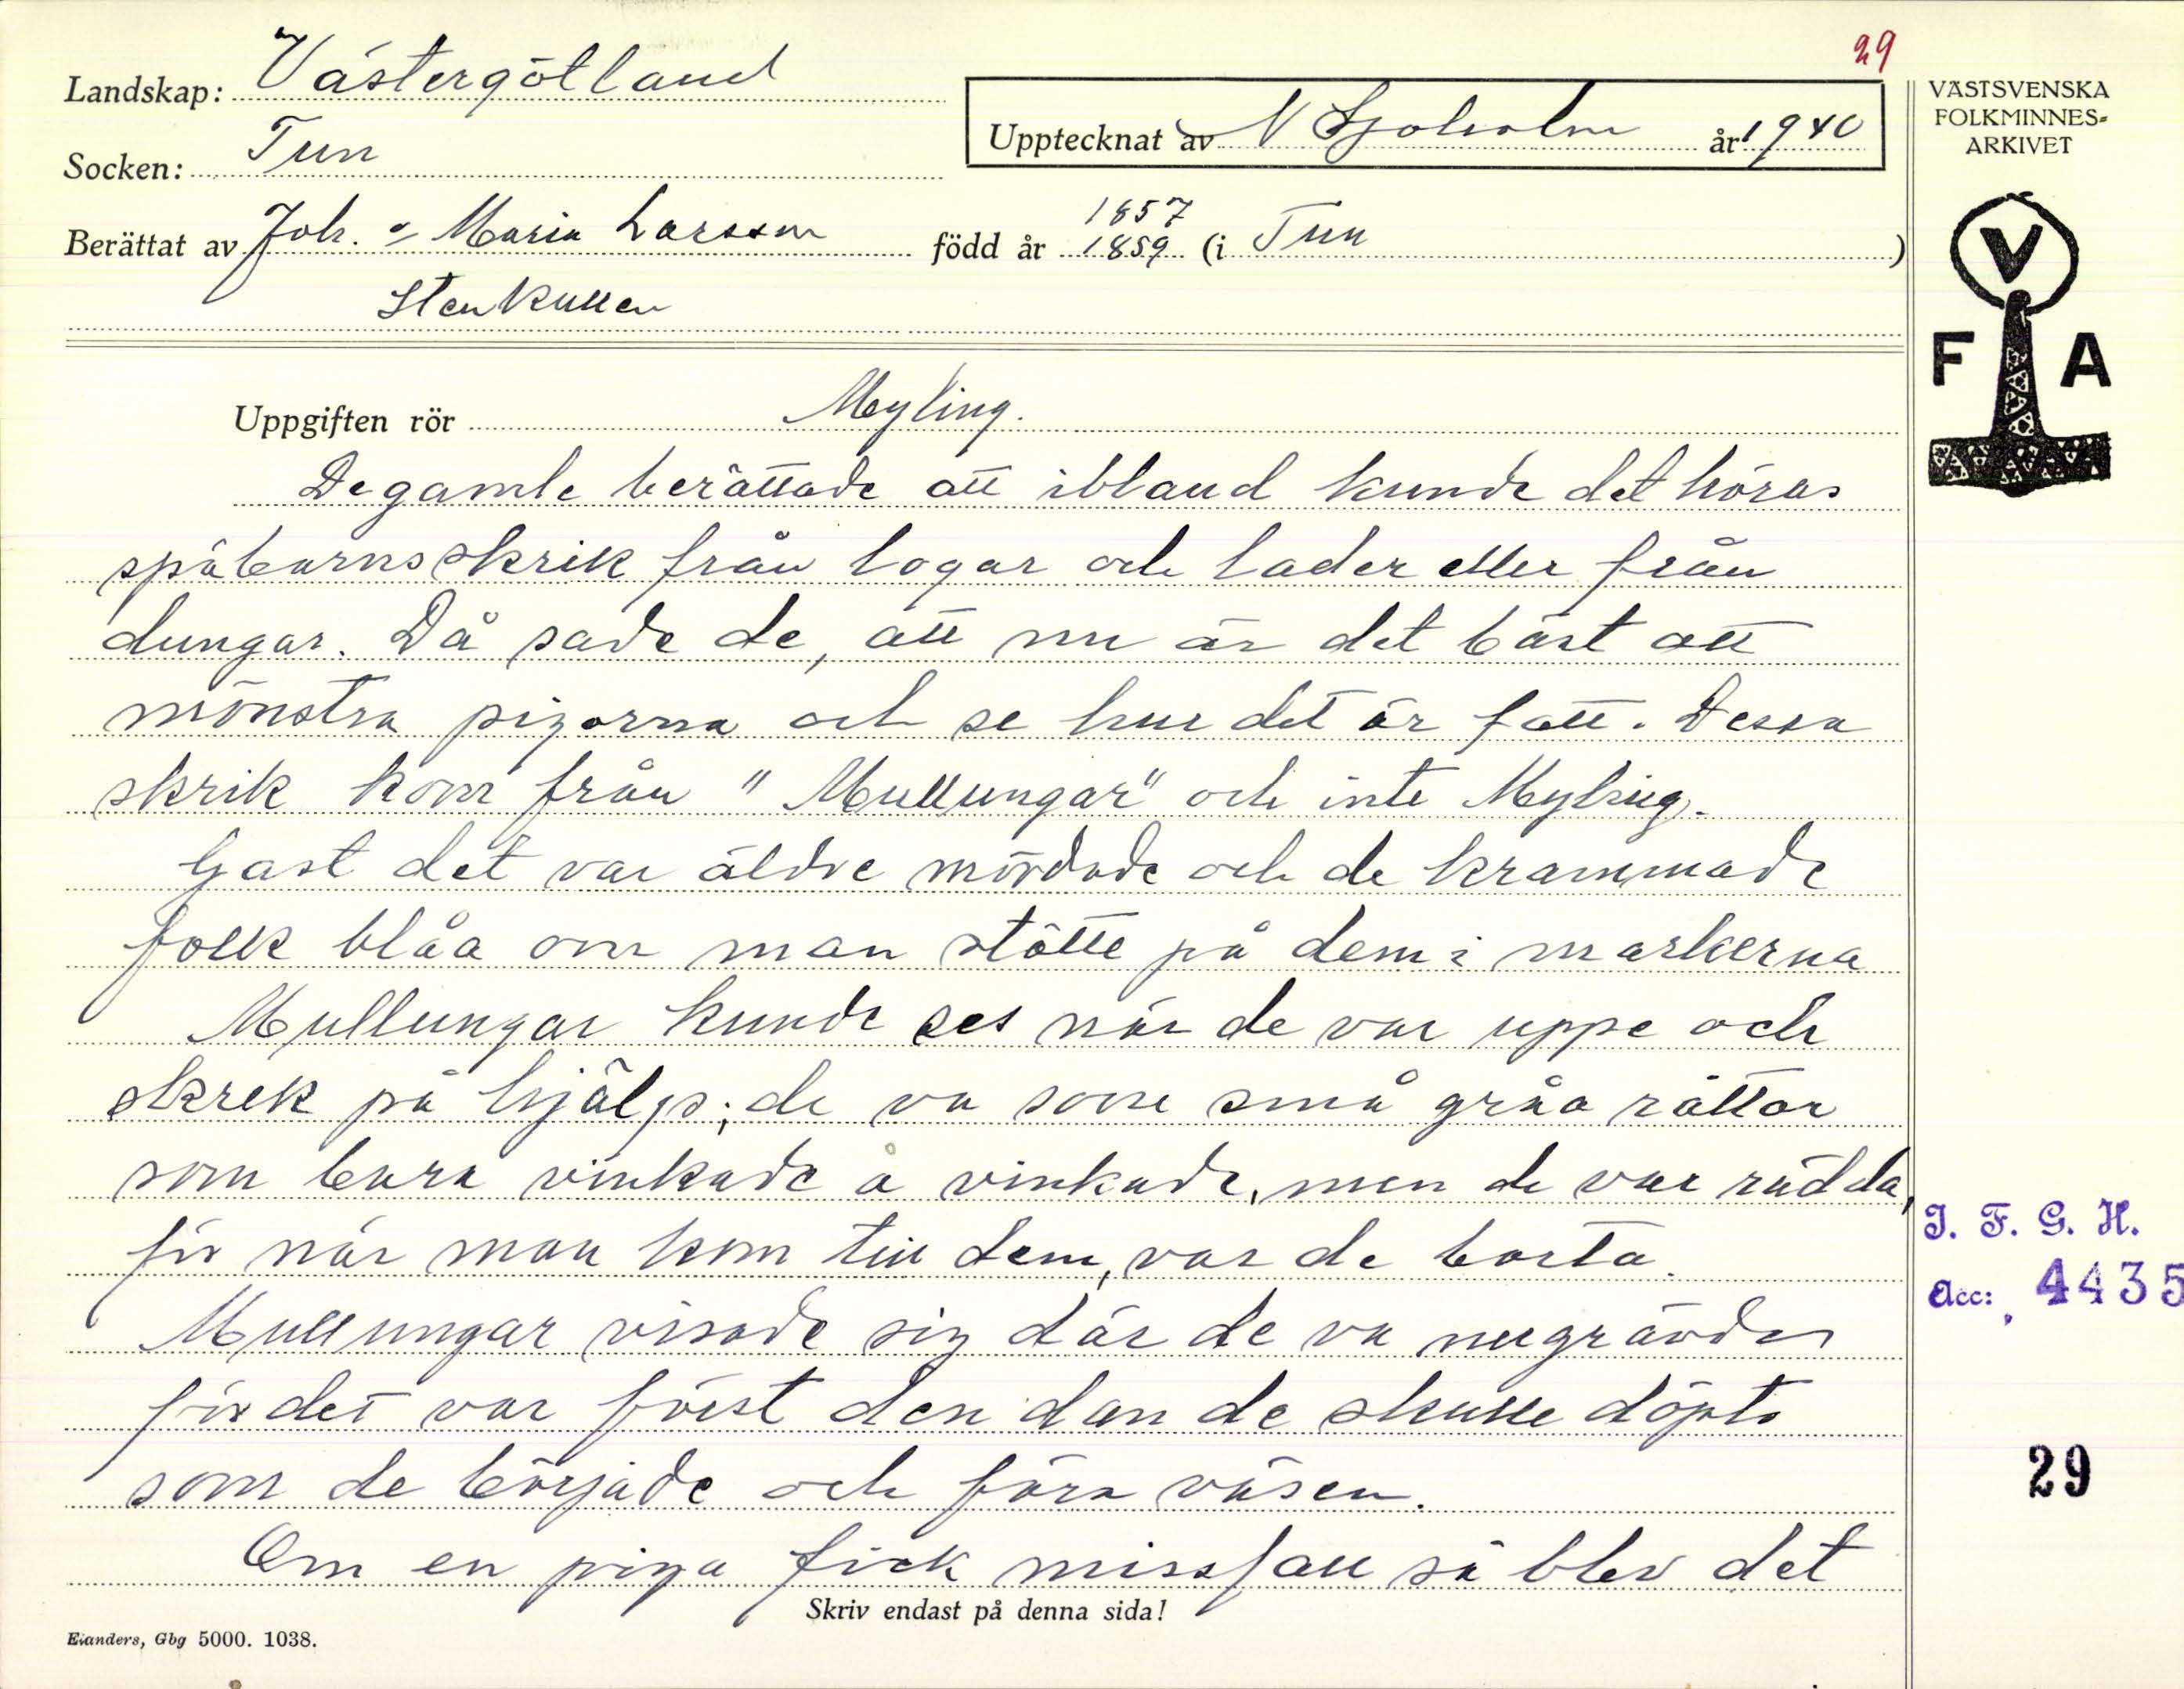 29
Landskap: Västergötland
Upptecknat av N Sjoholm år 1940
Socken: Tun
Berättat av Joh. o Maria Larsson född år 1857 1859 (i Tun)
Stenkullen
VÄSTSVENSKA
FOLKMINNES=
ARKIVET
V
F A
Uppgiften rör Myling.
De gamle berättade att ibland kunde det höras
späbarnsskrik från logar och lador eller från
dungar. Då sade de, att nu är det bäst att
mönstra pigorna och se hur det är fatt. Dessa
skrik kom från "Mullungar" och inte Myling.
Gast det var äldre mördade och de krammade
folk blåa om man stötte på dem i markerna
Mullungar kunde ses när de var uppe och
skrek på hjälp; de va som små gråa råttor
som bara vinkade å vinkade, men de var rädda,
för när man kom till dem, var de borta.
Mullungar visade sig där de va nergrävda
för det var först den dan de skulle döpts
som de började och föra väsen.
Om en piga fick missfall så blev det
Skriv endast på denna sida!
Elanders, Gbg 5000. 1038.
I. F. G. H.
Acc: 4435
29